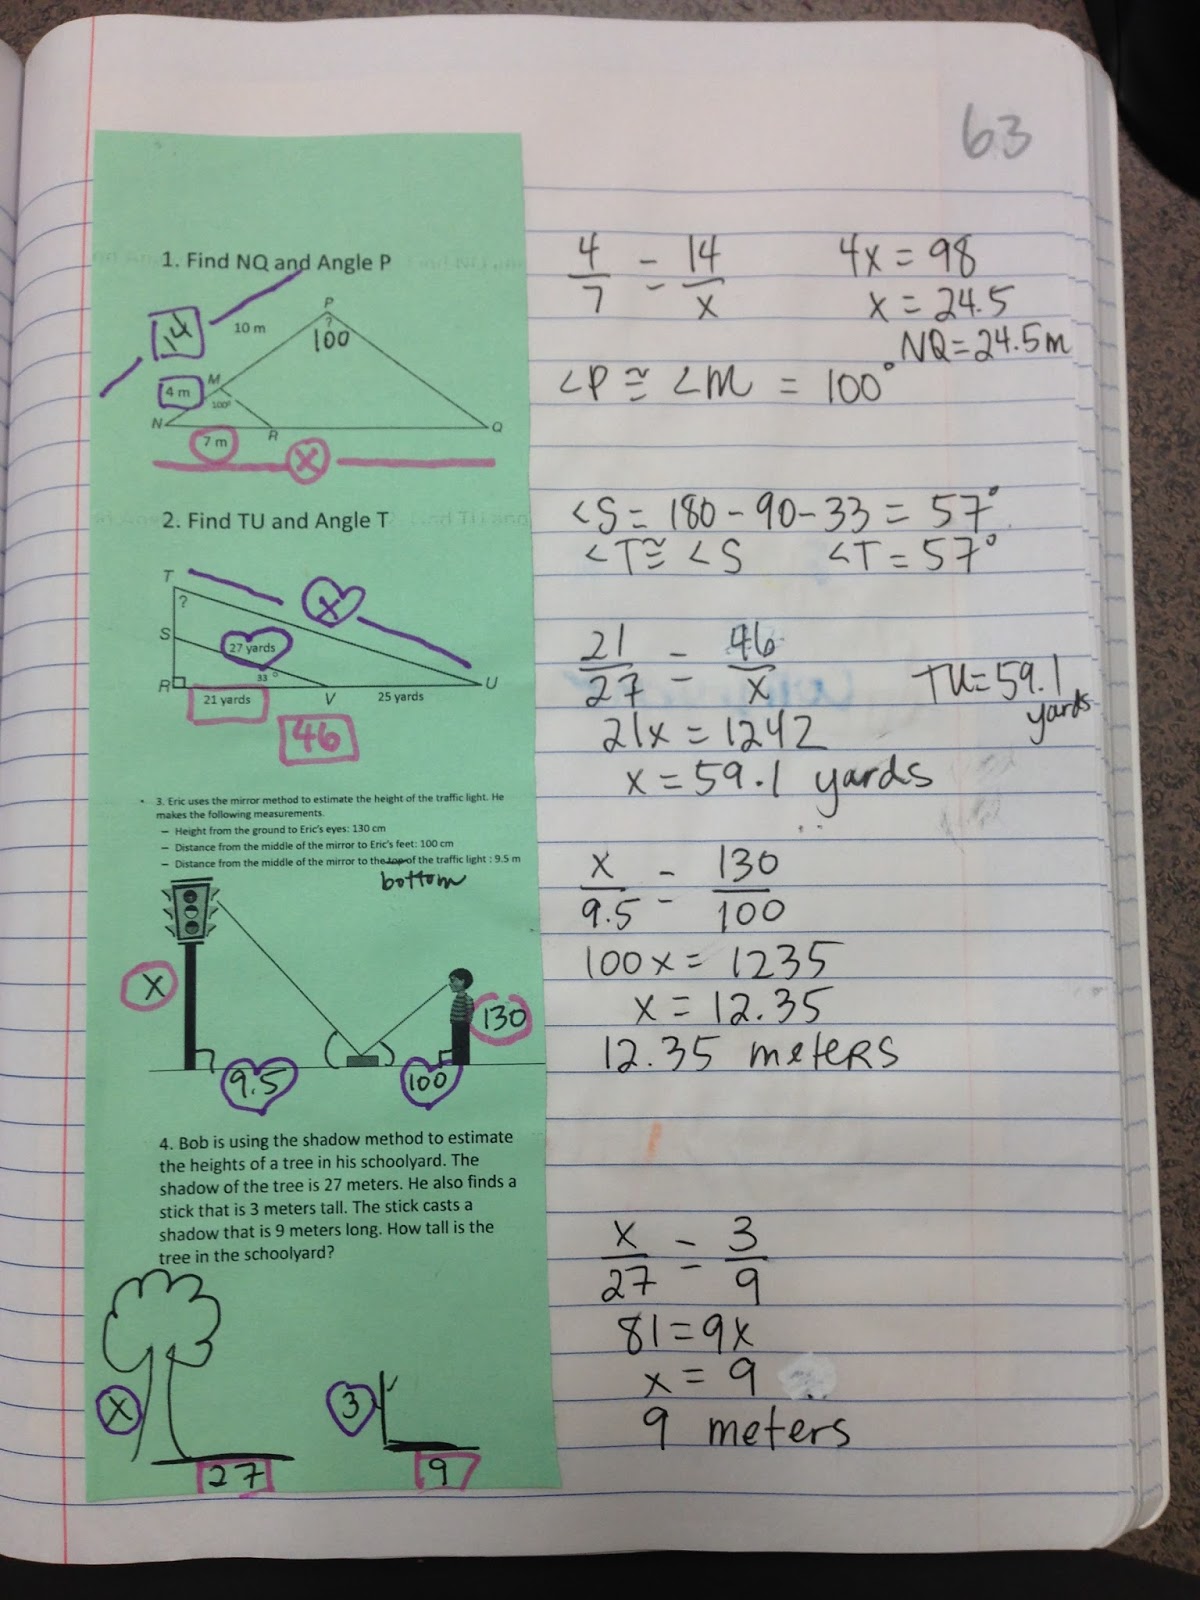 63
1. Find NQ and Angle P
P
?
100
10 m
14
4 m
M
100°
N
R
Q
7 m
x
4/7 = 14/x
4x = 98
x = 24.5
NQ = 24.5m
<P ≅ <M = 100°
2. Find TU and Angle T
T
?
x
S
27 yards
33°
R
V
U
21 yards
25 yards
46
<S = 180 - 90 - 33 = 57°
<T ≅ <S <T = 57°
21/27 = 46/x
21x = 1242
x = 59.1 yards
TU = 59.1
yards
3. Eric uses the mirror method to estimate the height of the traffic light. He
makes the following measurements.
– Height from the ground to Eric's eyes: 130 cm
– Distance from the middle of the mirror to Eric's feet: 100 cm
– Distance from the middle of the mirror to the top of the traffic light : 9.5 m
bottom
x
130
9.5
100
x/9.5 = 130/100
100x = 1235
x = 12.35
12.35 meters
4. Bob is using the shadow method to estimate
the heights of a tree in his schoolyard. The
shadow of the tree is 27 meters. He also finds a
stick that is 3 meters tall. The stick casts a
shadow that is 9 meters long. How tall is the
tree in the schoolyard?
x
27
3
9
x/27 = 3/9
81 = 9x
x = 9
9 meters